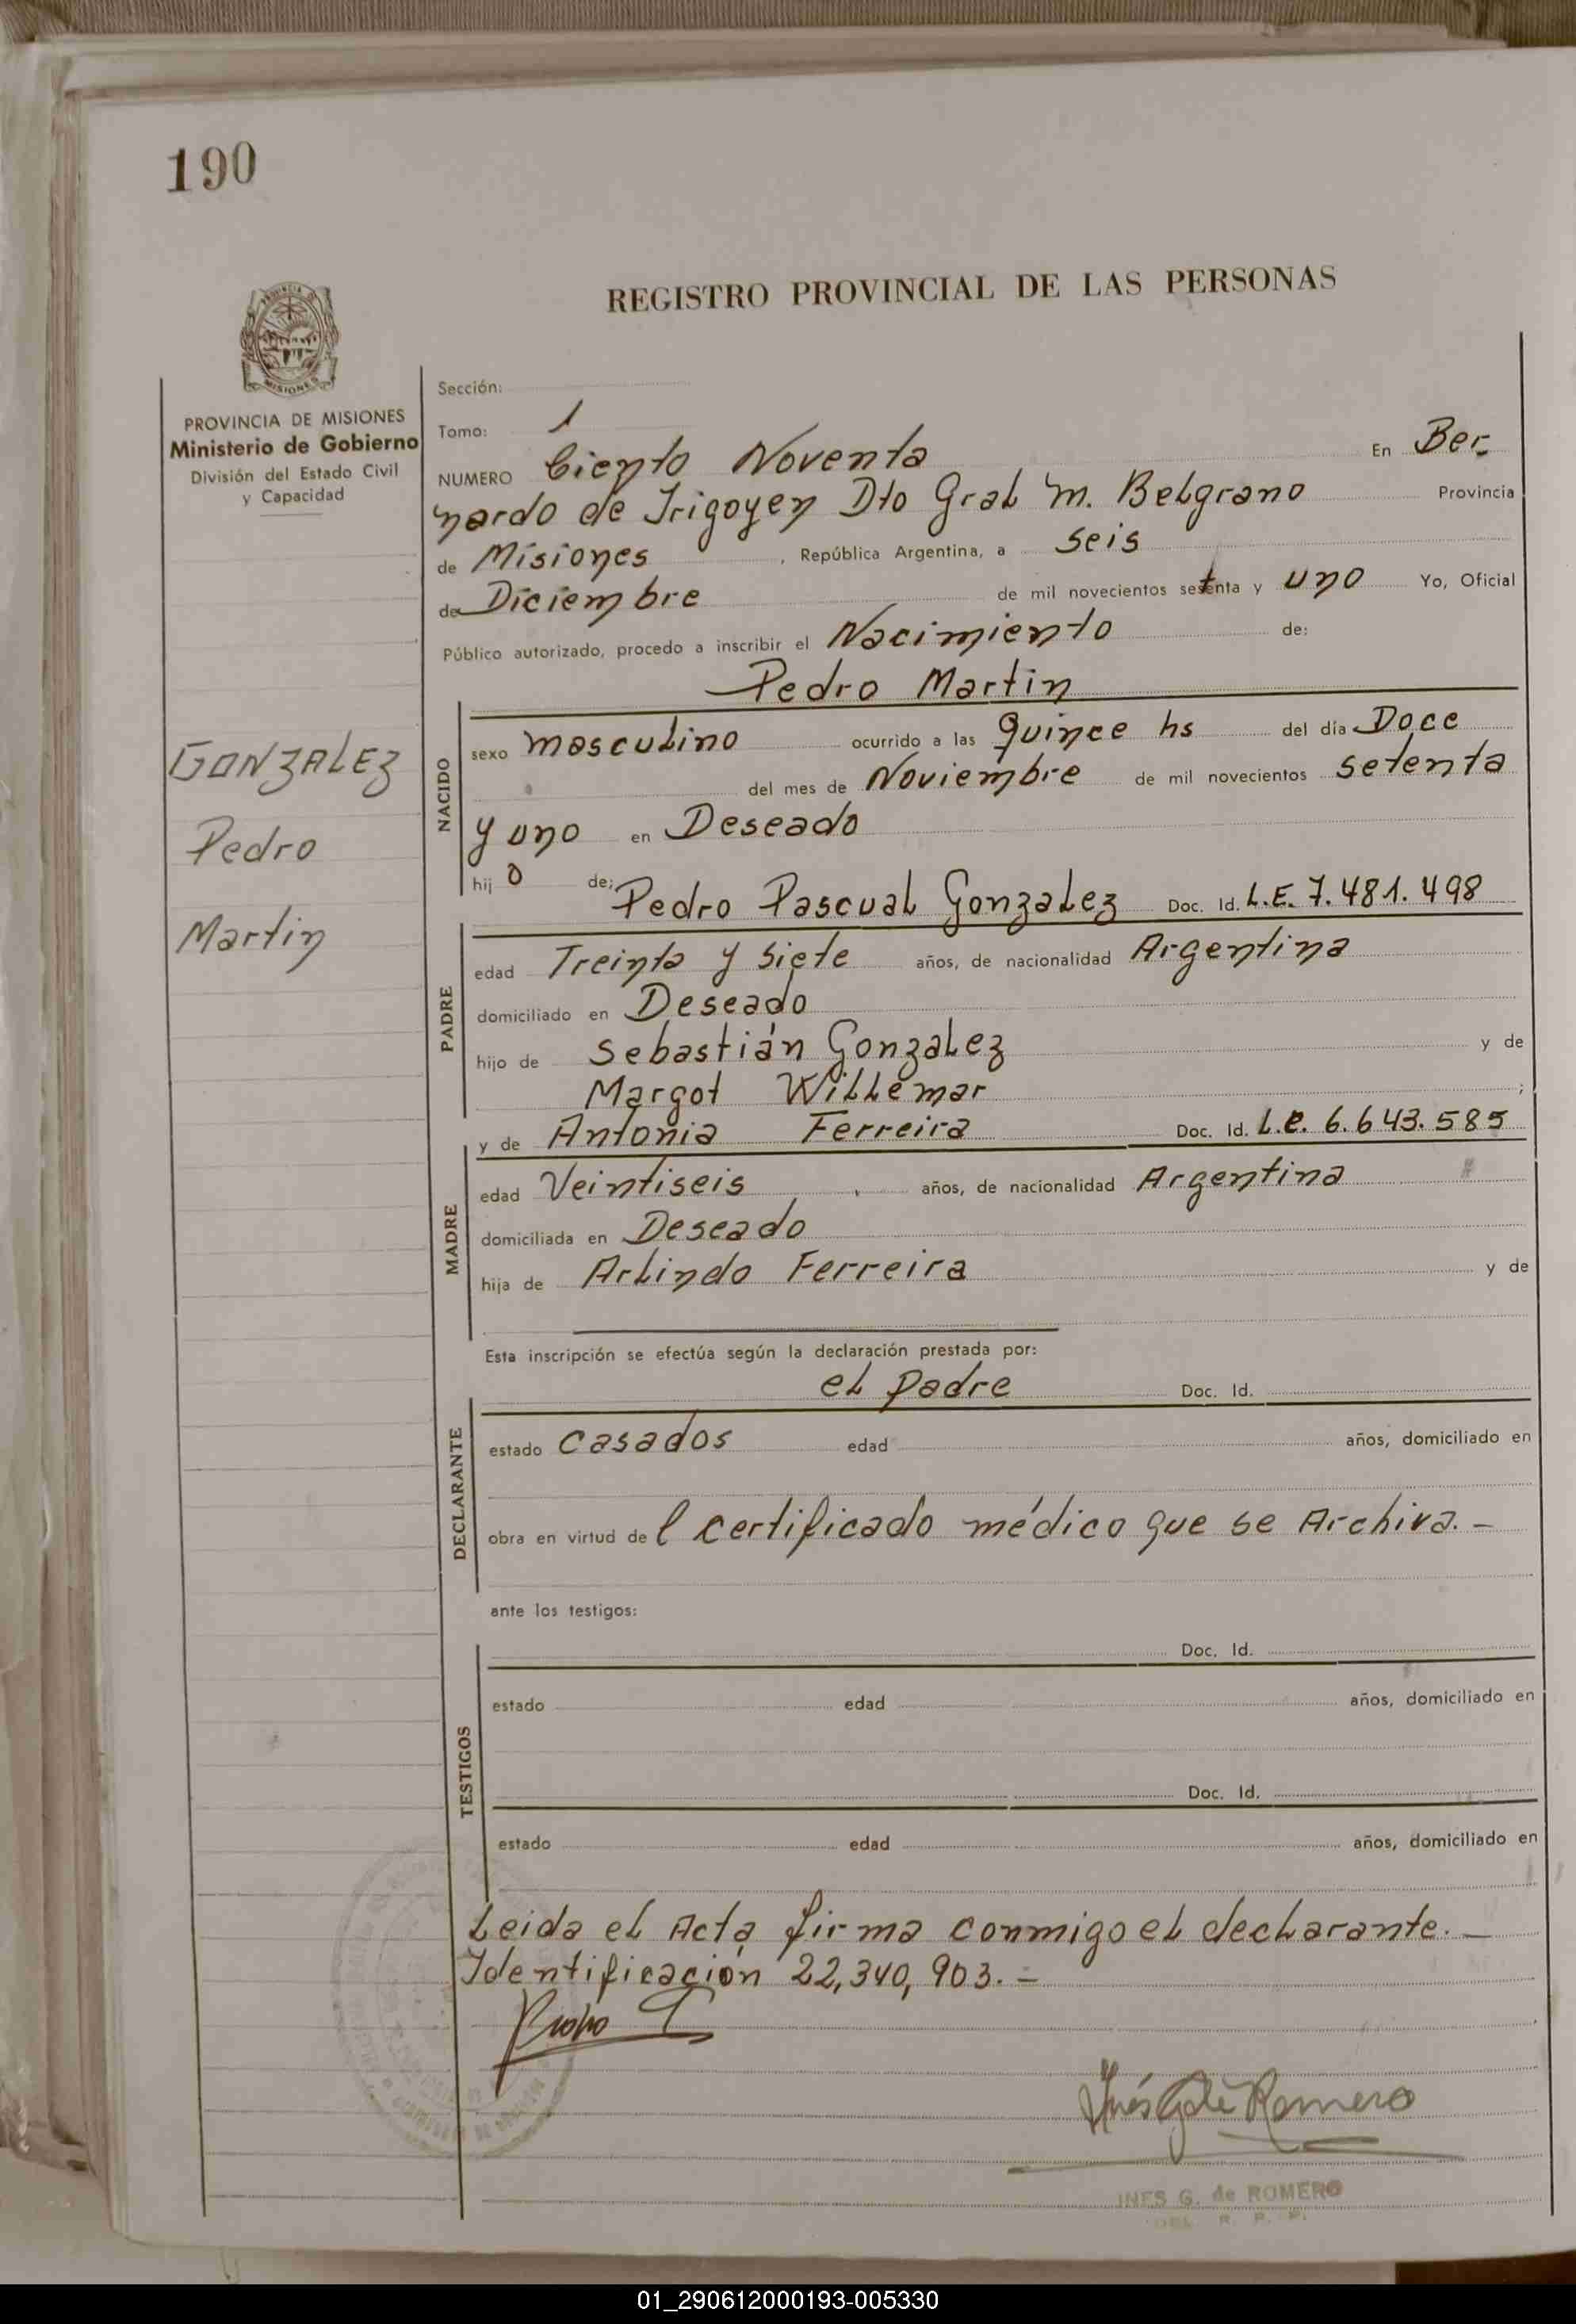 190
REGISTRO PROVINCIAL DE LAS PERSONAS
PROVINCIA DE
MISIONES
PROVINCIA DE MISIONES
Ministerio de Gobierno
División del Estado Civil
y Capacidad
GONZALEZ
Pedro
Martin
Sección:
Tomo: 1
NUMERO Ciento Noventa En Ber-
nardo de Irigoyen Dto Gral M. Belgrano Provincia
de Misiones , República Argentina, a seis
de Diciembre de mil novecientos setenta y uno Yo, Oficial
Público autorizado, procedo a inscribir el Nacimiento de:
Pedro Martin
NACIDO
sexo masculino ocurrido a las quince hs del día Doce
del mes de Noviembre de mil novecientos setenta
y uno en Deseado
hijo de: Pedro Pascual Gonzalez Doc. Id. L.E. 7.481.498
PADRE
edad Treinta y siete años, de nacionalidad Argentina
domiciliado en Deseado
hijo de Sebastián Gonzalez y de
Margot Willemar ;
y de Antonia Ferreira Doc. Id. L.C. 6.643.585
MADRE
edad Veintiseis , años, de nacionalidad Argentina
domiciliada en Deseado
hija de Arlindo Ferreira y de
Esta inscripción se efectúa según la declaración prestada por:
el padre Doc. Id.
DECLARANTE
estado casados edad años, domiciliado en
obra en virtud del certificado médico que se Archiva.-
ante los testigos:
Doc. Id.
TESTIGOS
estado edad años, domiciliado en
Doc. Id.
estado edad años, domiciliado en
Leida el Acta firma conmigo el declarante.-
Identificación 22,340,903.-
Inés G de Romero
INES G. de ROMERO
DEL R. P. P.
01_290612000193-005330